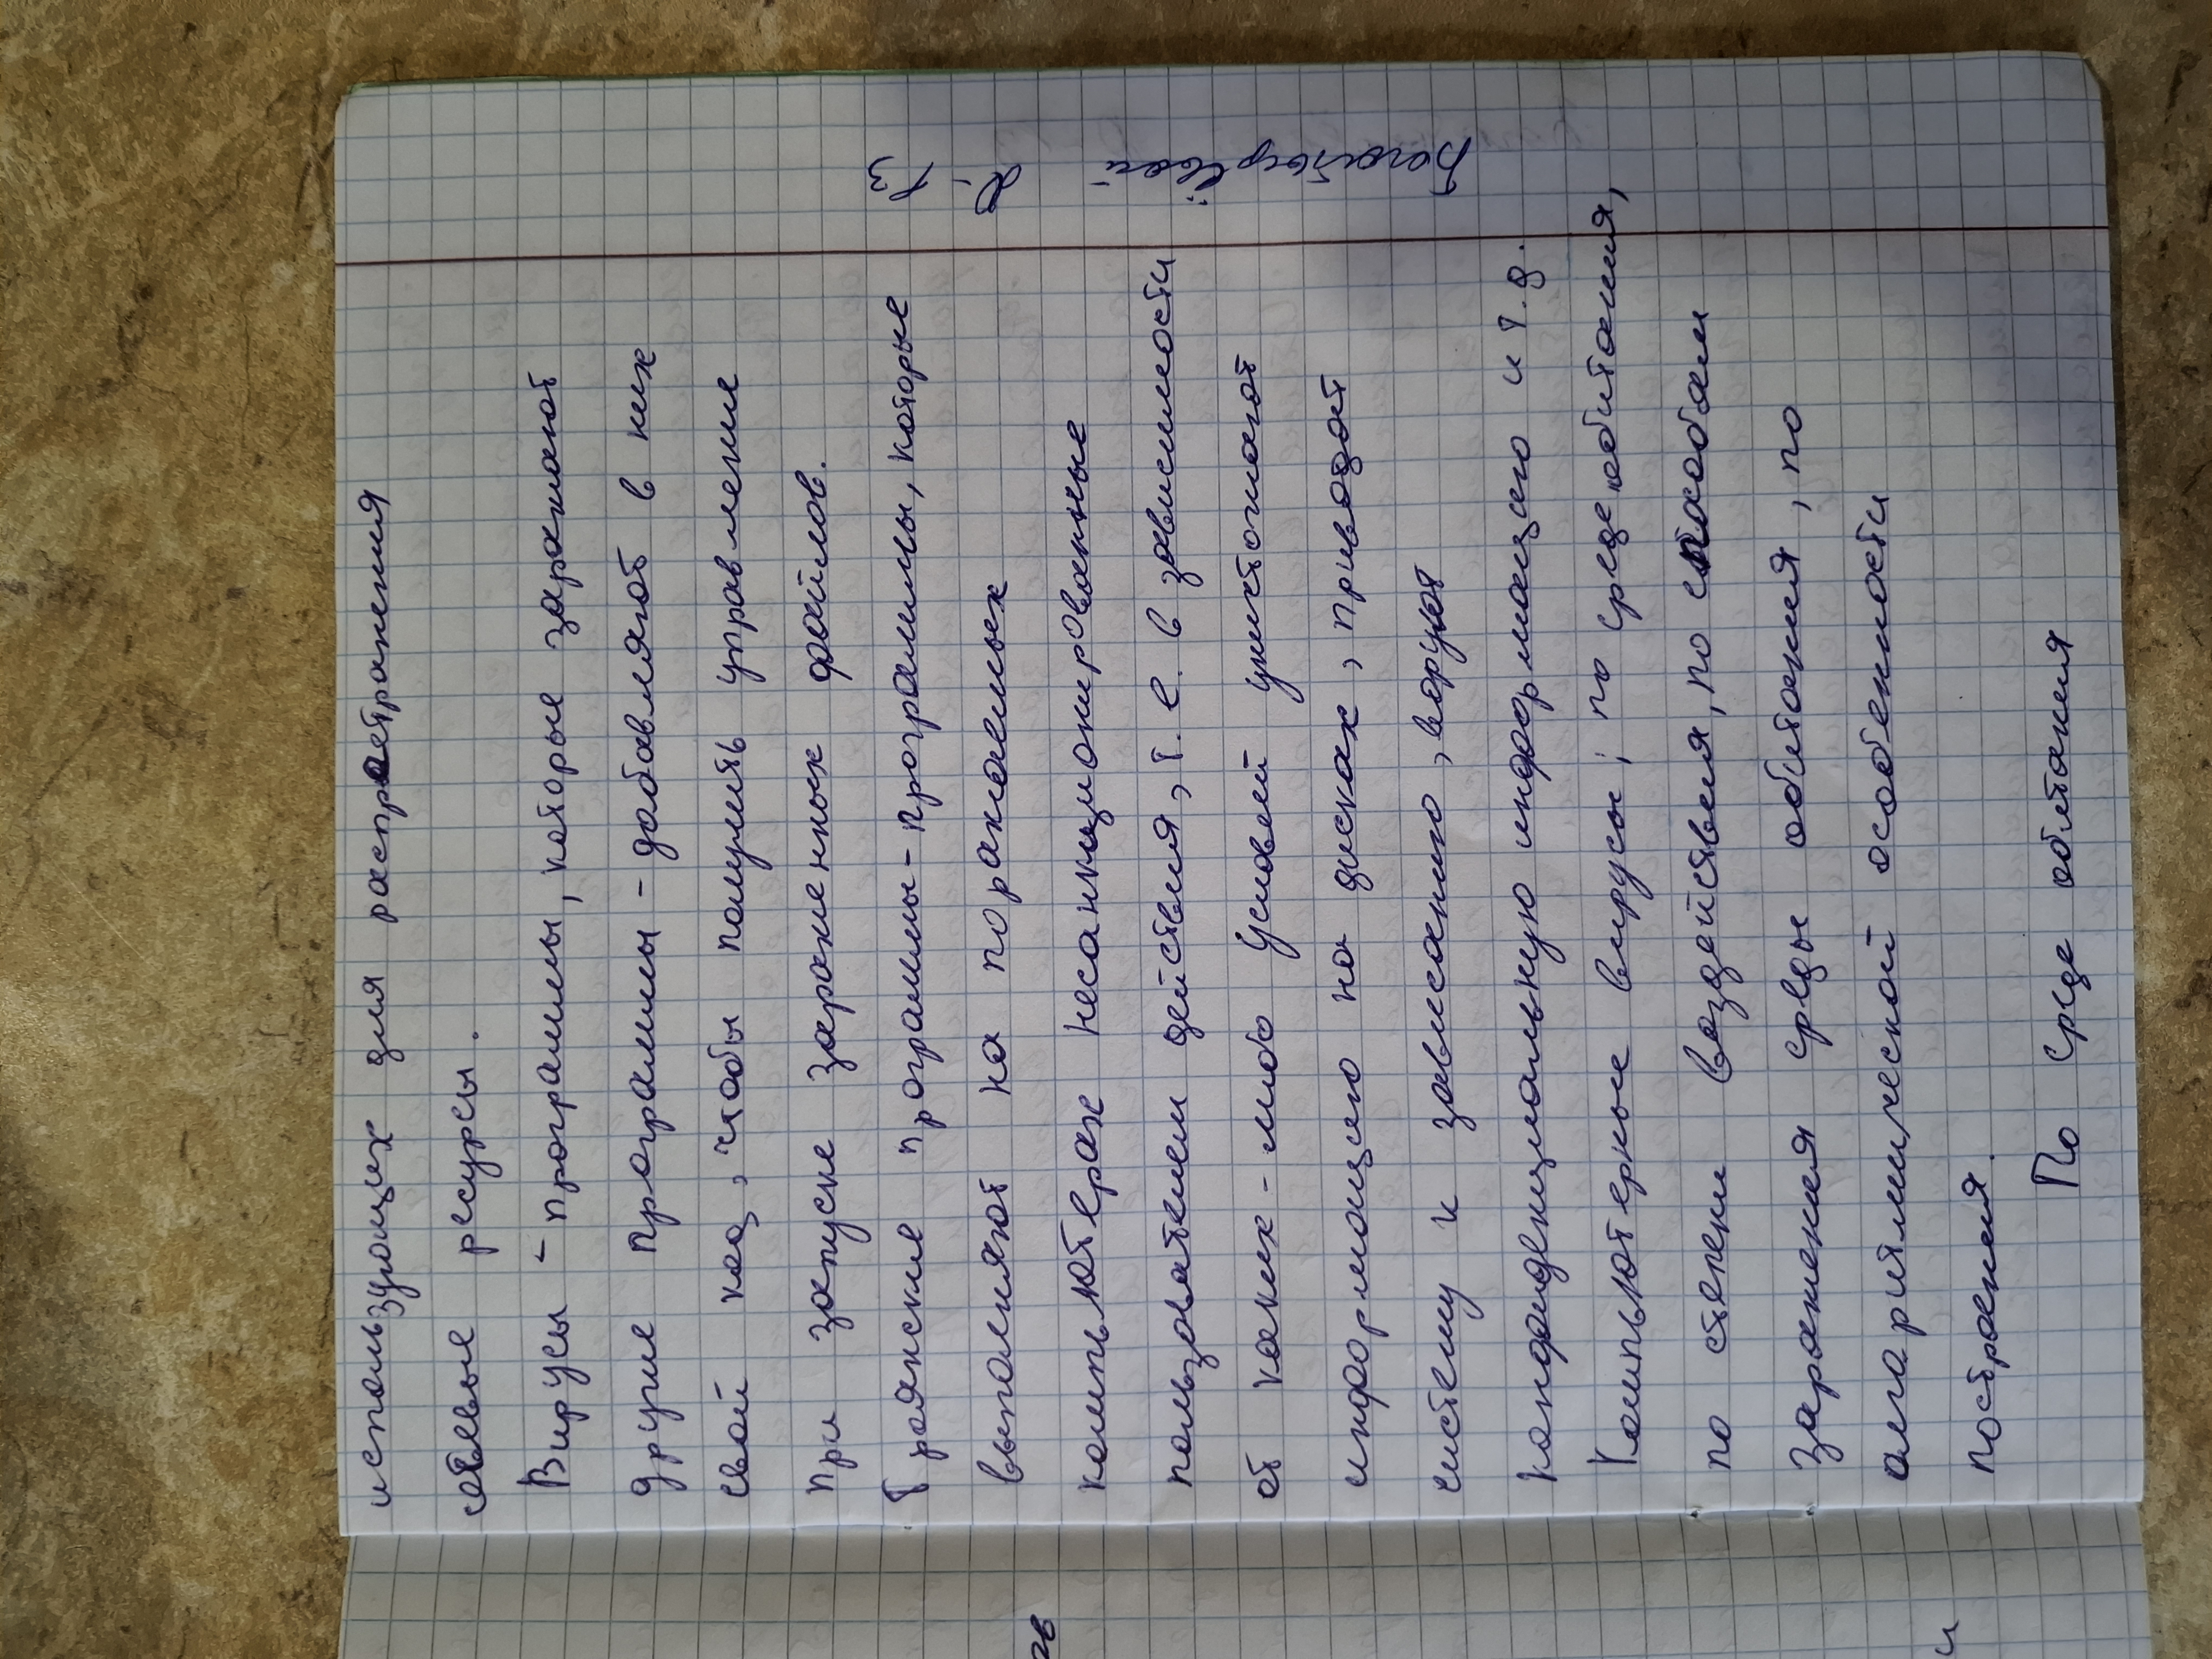 использующих для распростражения
сетевые ресурсы.
Вирусы - программы, которые заражают
другие программы - добавляют в них
свой код, чтобы получить управление
при запуске зараженных файлов.
Троянские программы - программы, которые
выполняют на поражаемых
компьютерах несанкционированные
пользователем действия, т.е. в зависимости
от каких-либо условий уничтожают
информацию на дисках, приводят
систему к зависанию, воруют
конфиденциальную информацию и т.д.
Компьютерные вирусы; по среде обитания,
по степени воздействия, по способам
заражения среды обитания, по
алгоритмической особенности
построения.
По среде обитания